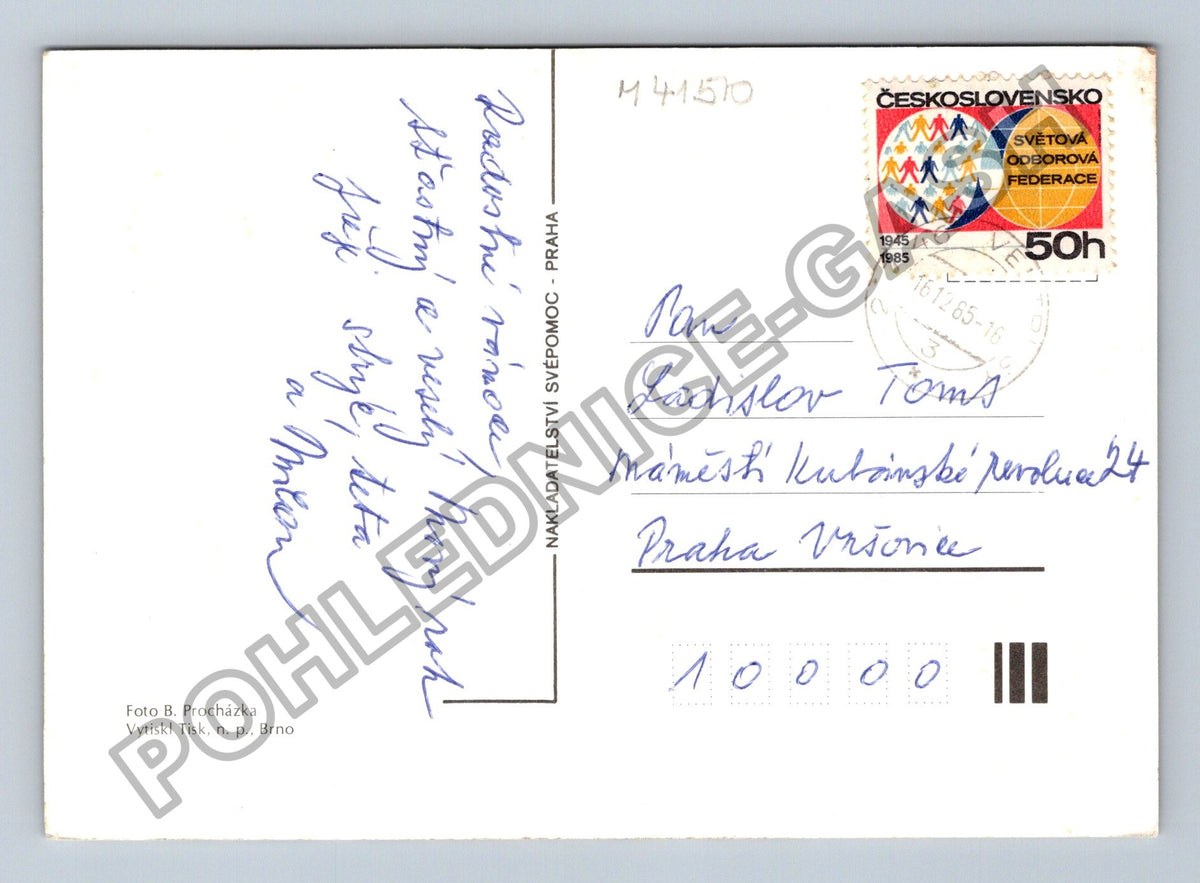 M 41510
ČESKOSLOVENSKO
SVĚTOVÁ
ODBOROVÁ
FEDERACE
1945
1985
50h
16.12.85-16
3
Radostné vánoce
šťastný a veselý Nový rok
přejí strýc, teta
a Milan
NAKLADATELSTVÍ SVÉPOMOC - PRAHA
Pan
Ladislav Toms
Náměstí Kubánské revoluce 24
Praha Vršovice
10000
Foto B. Procházka
Vytiskl Tisk, n. p., Brno
POHLEDNICE-GASH